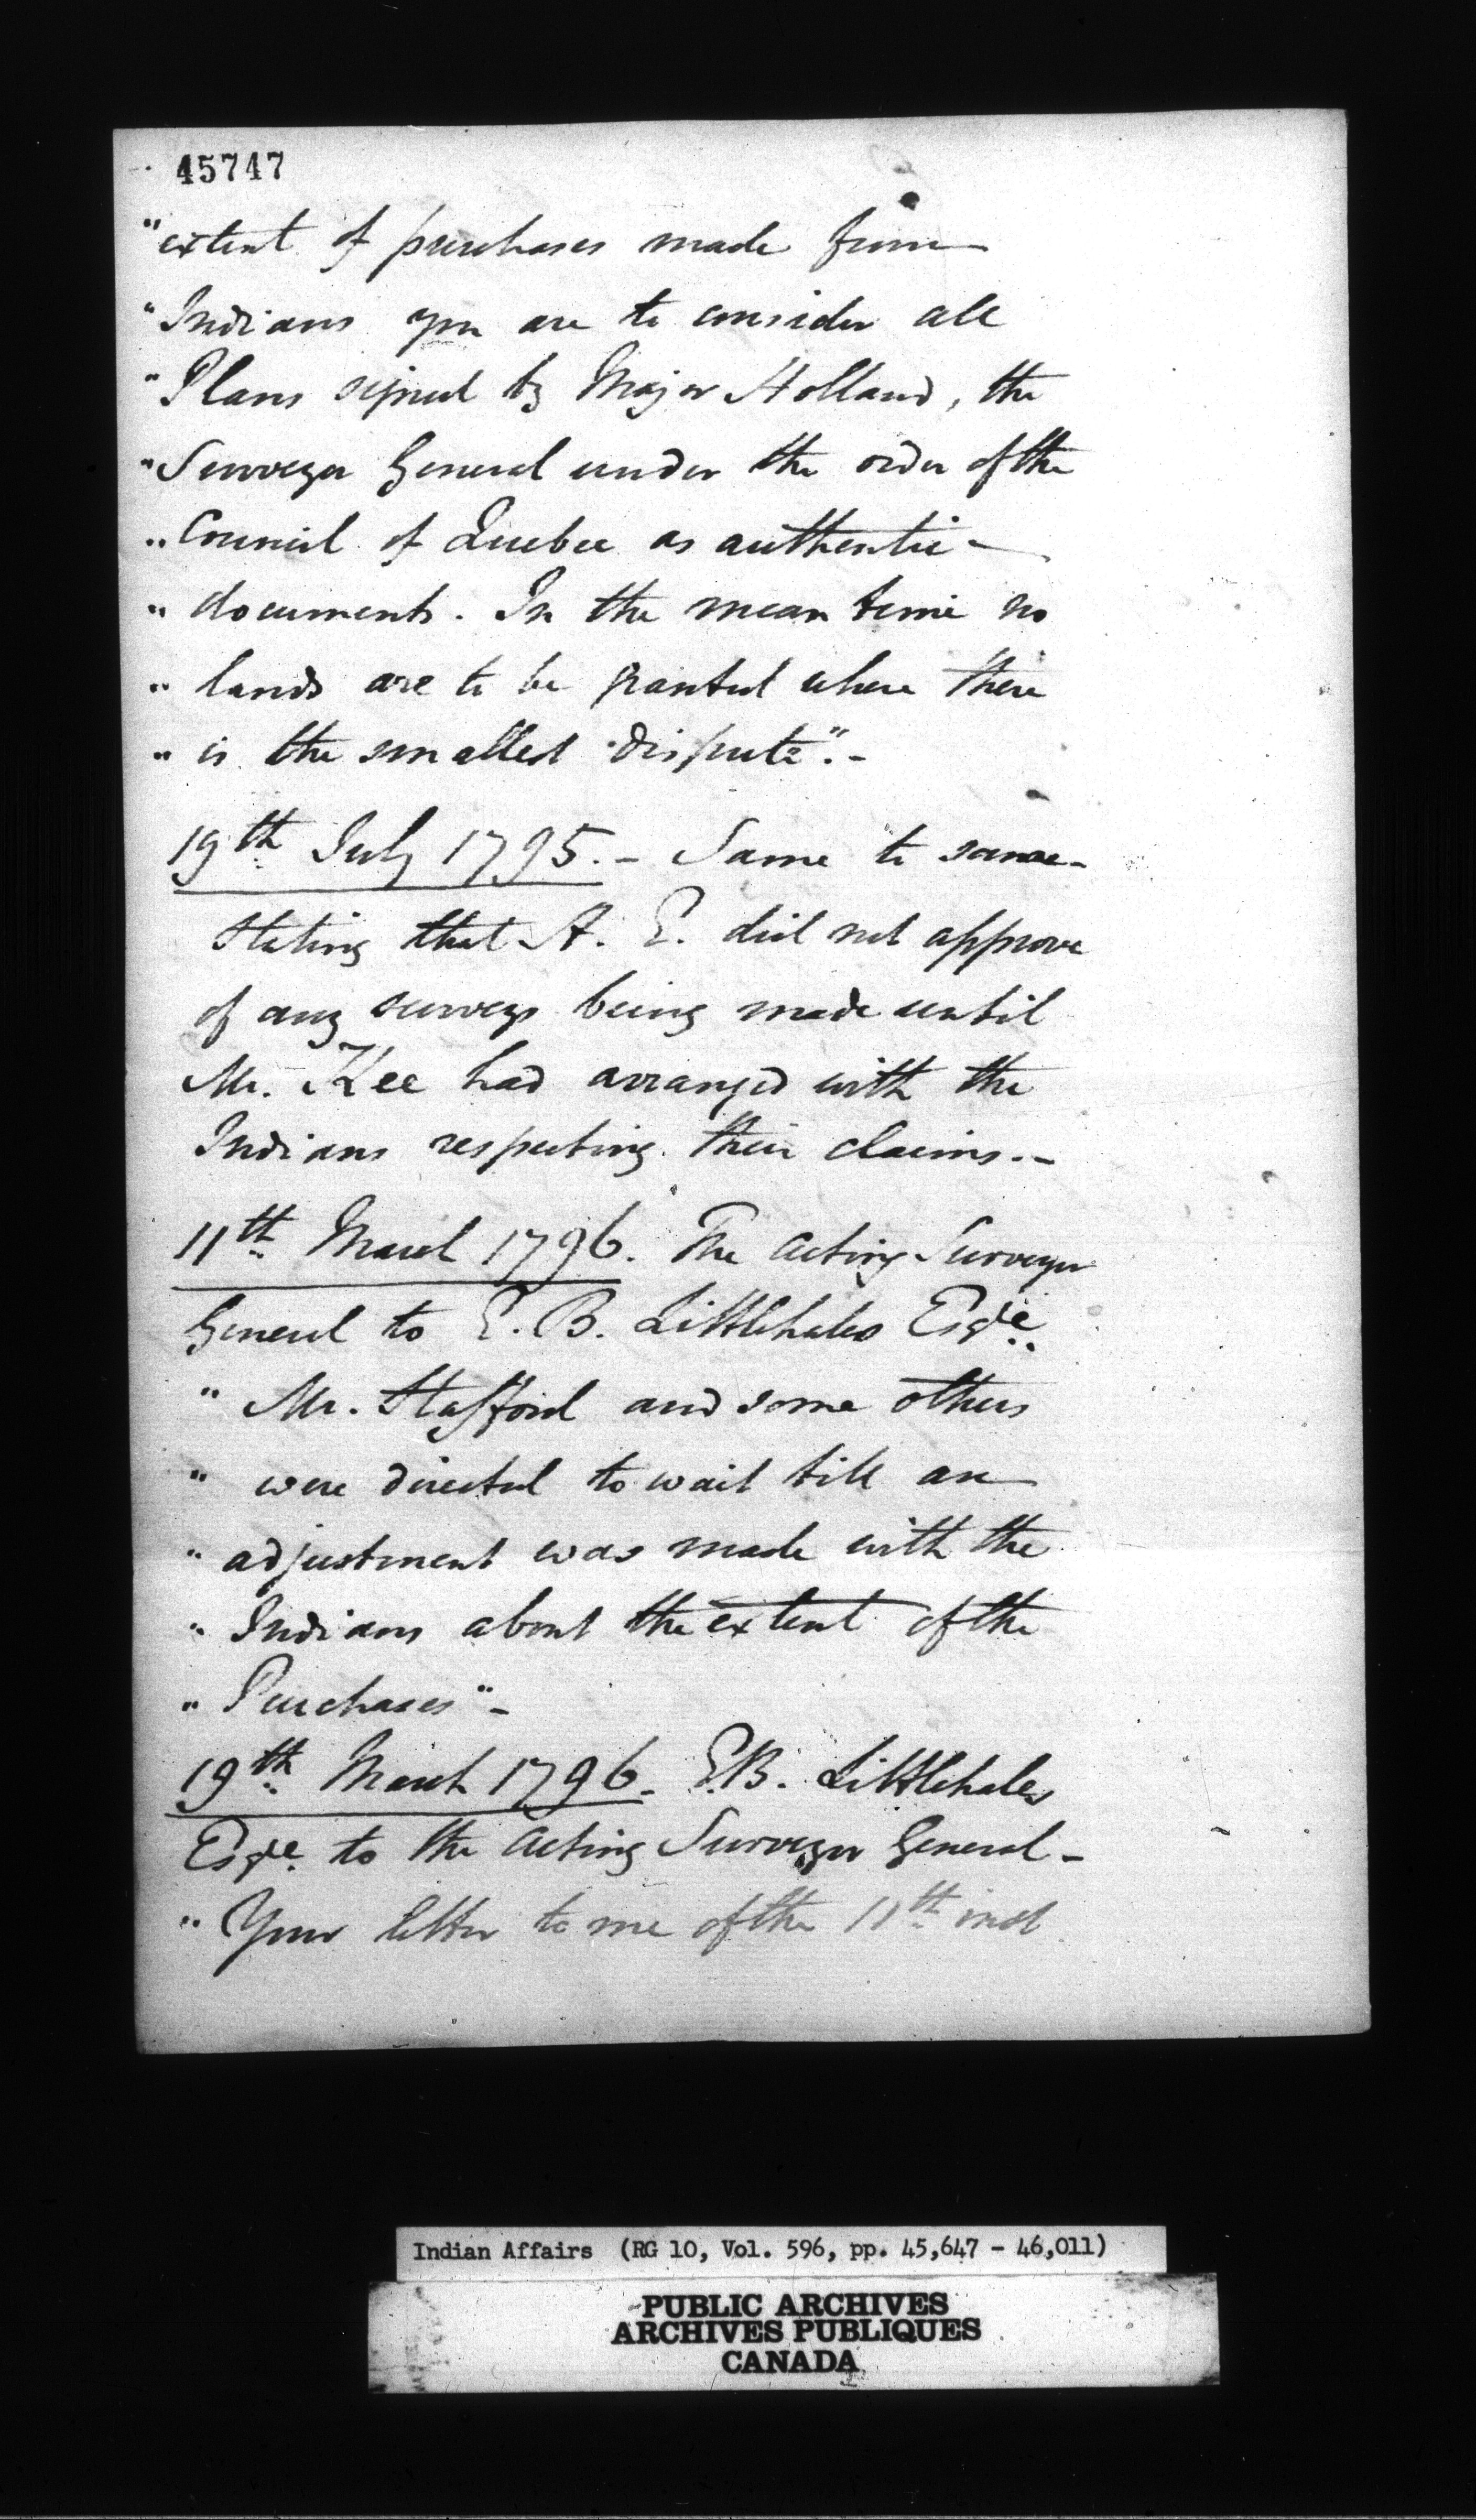 45747
"extent of purchases made from
"Indians you are to consider all
"Plans signed by Major Holland, the
"Surveyor General under the order of the
"Council of Quebec as authentic -
"documents. In the mean time no
"lands are to be granted where there
"is the smallest dispute". -
19th July 1795. - Same to same -
stating that H. E. did not approve
of any surveys being made until
Mr. Kee had arranged with the
Indians respecting their claims. -
11th March 1796. The Acting Surveyor
General to E. B. Littlehales Esqre.
" Mr. Stafford and some others
" were directed to wait till an
" adjustment was made with the
" Indians about the extent of the
" Purchases" -
19th March 1796. E.B. Littlehales
Esqre. to the Acting Surveyor General -
" Your letter to me of the 11th inst
Indian Affairs (RG 10, Vol. 596, pp. 45,647 - 46,011)
PUBLIC ARCHIVES
ARCHIVES PUBLIQUES
CANADA